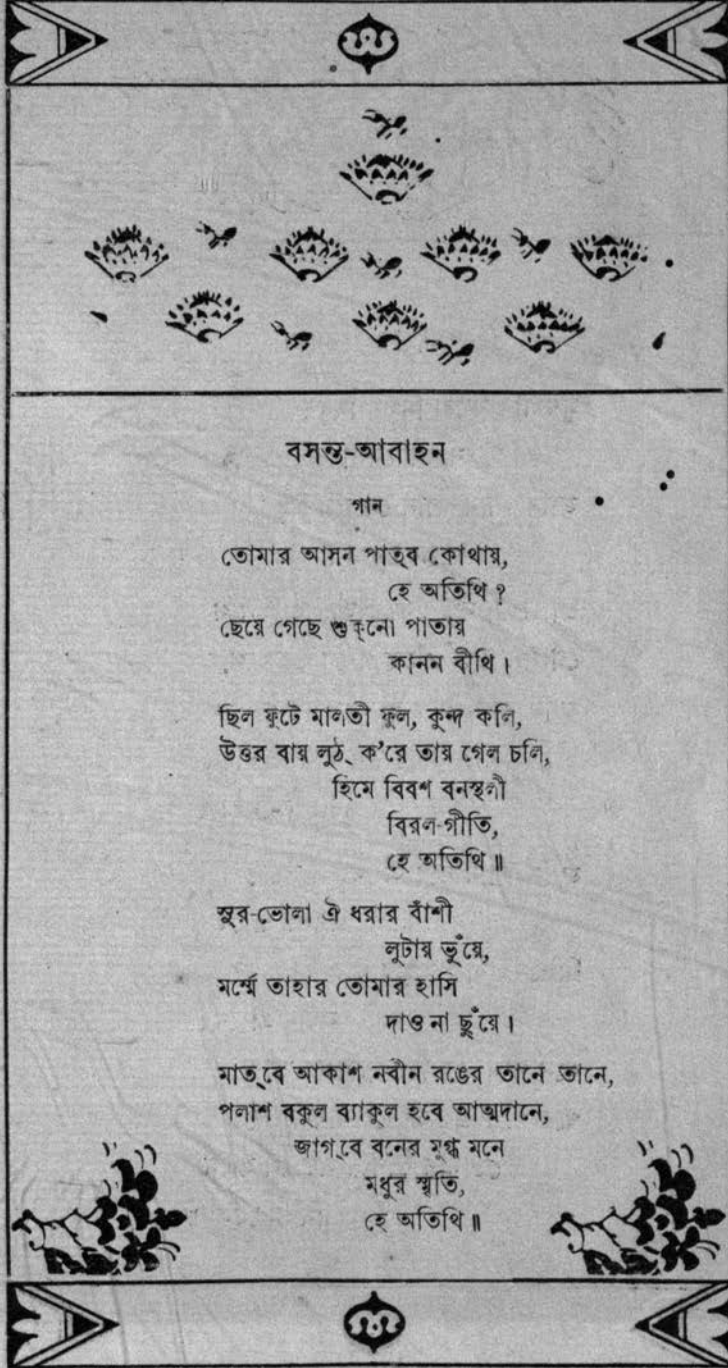 বসন্ত-আবাহন
গান
তোমার আসন পাত্‌ব কোথায়,
হে অতিথি ?
ছেয়ে গেছে শুক্‌নো পাতায়
কানন বীথি ।
ছিল ফুটে মালতী ফুল, কুন্দ কলি,
উত্তর বায় লুঠ্‌ ক'রে তায় গেল চলি,
হিমে বিবশ বনস্থলী
বিরল-গীতি,
হে অতিথি ॥
সুর-ভোলা ঐ ধরার বাঁশী
লুটায় ভুঁয়ে,
মর্ম্মে তাহার তোমার হাসি
দাও না ছুঁয়ে ।
মাত্‌বে আকাশ নবীন রঙের তানে তানে,
পলাশ বকুল ব্যাকুল হবে আত্মদানে,
জাগ্‌বে বনের মুগ্ধ মনে
মধুর স্মৃতি,
হে অতিথি ॥